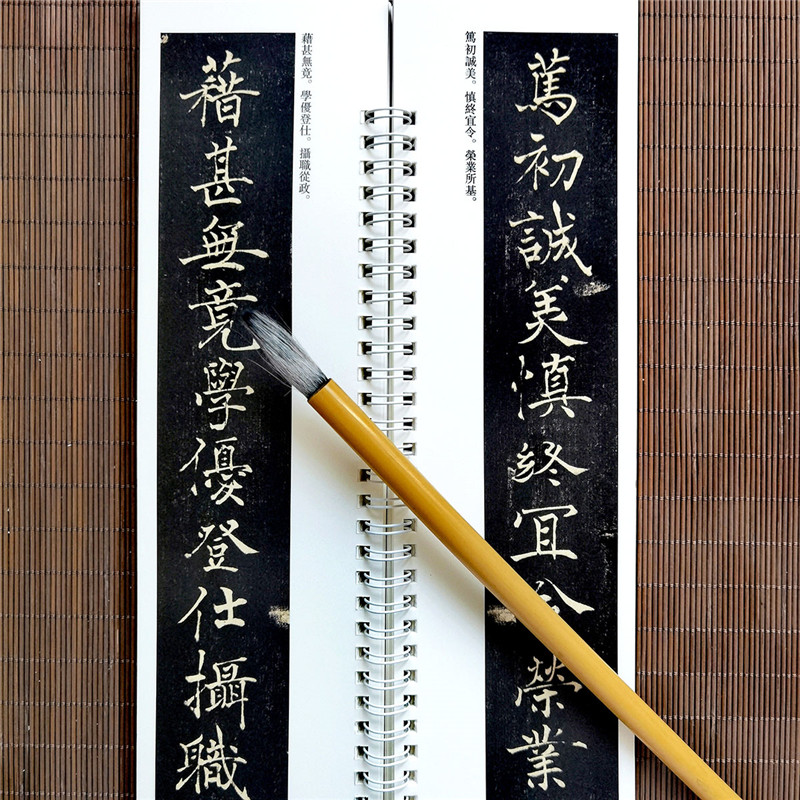 篤初誠美。慎終宜令。榮業所基。
篤初誠美慎終宜令榮業
藉甚無竟。學優登仕。攝職從政。
藉甚無竟學優登仕攝職